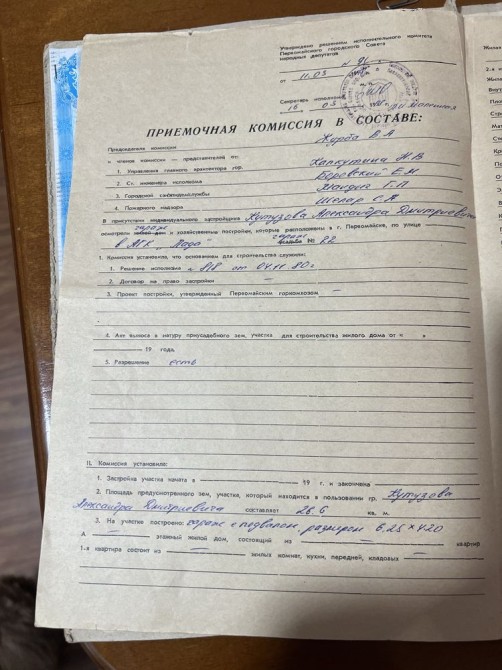 Утверждено решением исполнительного комитета
Первомайского городского Совета
народных депутатов
№ 91
от 11.03
Секретарь исполкома
16 03
ПРИЕМОЧНАЯ КОМИССИЯ В СОСТАВЕ:
Председателя комиссии Журба В А
и членов комиссии — представителей от:
1. Управления главного архитектора гор. Хапкутина Н.В
2. Ст. инженера исполкома Боровский Е.Н
3. Городской санэпидемслужбы Г П
4. Пожарного надзора Шепер С А
В присутствии индивидуального застройщика Кутузова Александра Дмитриевича
гараж
осмотрели жилой дом и хозяйственные постройки, которые расположены в г. Первомайске, по улице —
в АГК " Лада" гараж усадьба № 22
I. Комиссия установила, что основанием для строительства служили:
1. Решение исполкома № 818 от 04.11.80 г
2. Договор на право застройки —
3. Проект постройки, утвержденный Первомайским горкомхозом —
4. Акт выноса в натуру приусадебного зем. участка для строительства жилого дома от « »
19 года.
5. Разрешение есть
II. Комиссия установила:
1. Застройка участка начата в 19 г. и закончена
2. Площадь предусмотренного зем. участка, который находится в пользовании гр. Кутузова
Александра Дмитриевича составляет 28.6 кв. м.
3. На участке построено: гараж с подвалом, размером 6,25 × 4.20
А — этажный жилой дом, состоящий из — квартир
1-я квартира состоит из — жилых комнат, кухни, передней, кладовых —